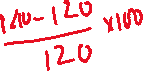 140-120
120 x100